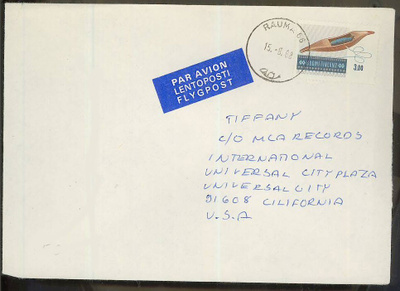 RAUMA 66
15.-6.88
3.00
PAR AVION
LENTOPOSTI
FLYGPOST
TIFFANY
C/O MCA RECORDS
INTERNATIONAL
UNIVERSAL CITY PLAZA
UNIVERSAL CITY
91608 CILIFORNIA
U.S.A